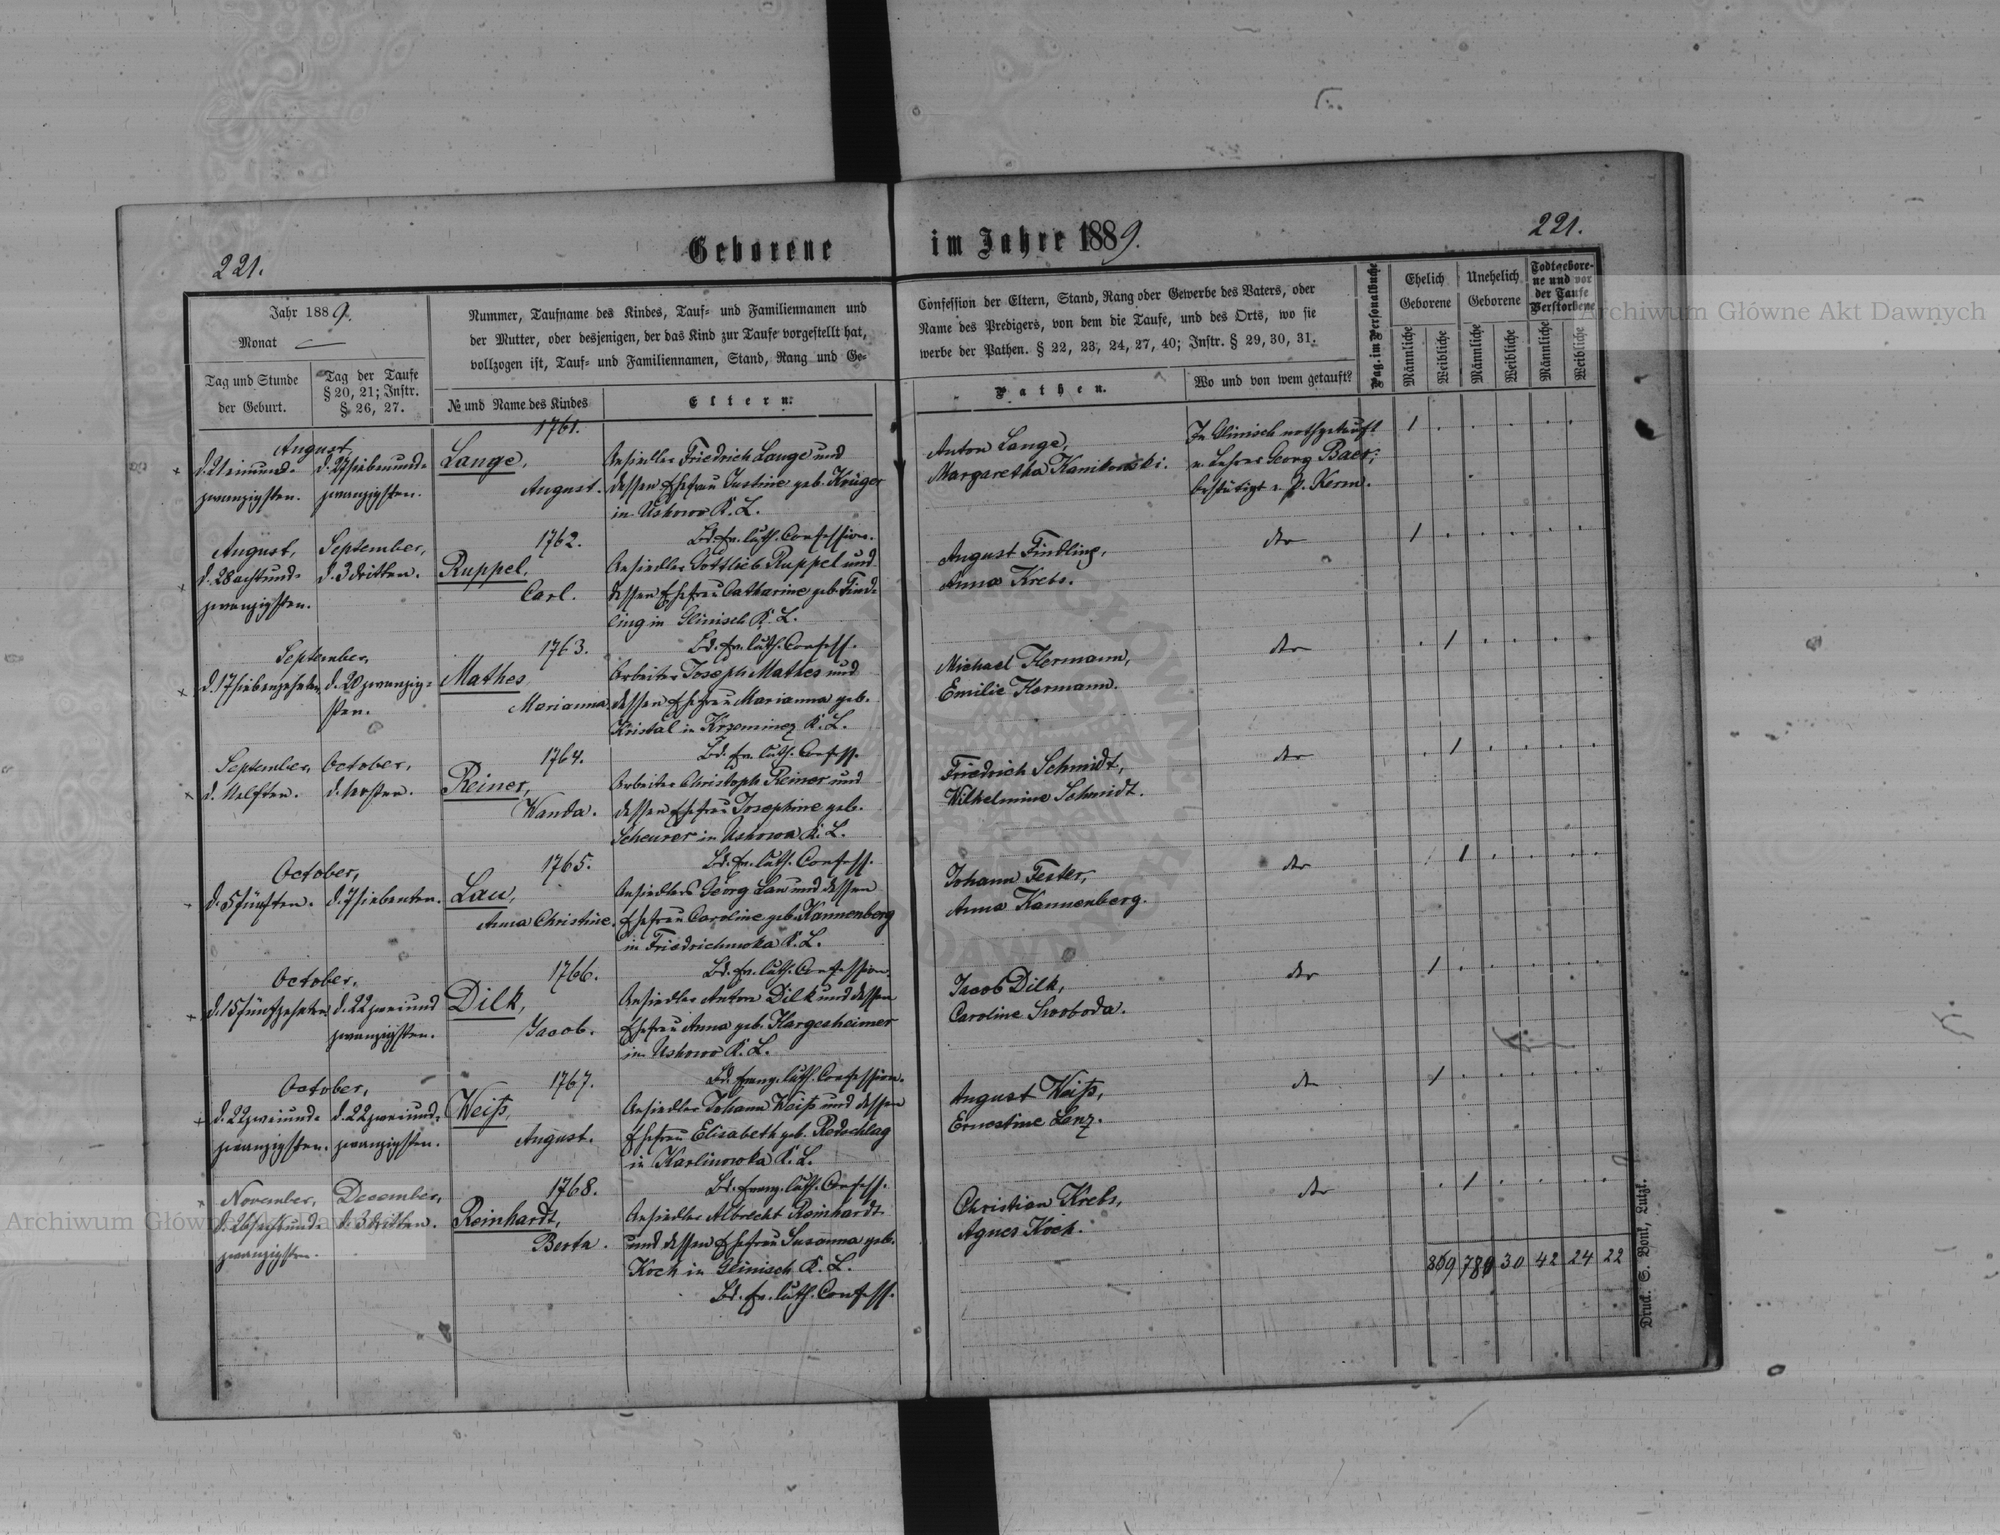 221.
Geborene
im Jahre 1889.
221.
Jahr 1889.
Monat
Tag und Stunde
der Geburt.
Tag der Taufe
§ 20, 21; Instr.
§ 26, 27.
Nummer, Taufname des Kindes, Tauf- und Familiennamen und
der Mutter, oder desjenigen, der das Kind zur Taufe vorgestellt hat,
vollzogen ist, Tauf- und Familiennamen, Stand, Rang und Ge-
№ und Name des Kindes
Eltern.
Confession der Eltern, Stand, Rang oder Gewerbe des Vaters, oder
Name des Predigers, von dem die Taufe, und des Orts, wo sie
werbe der Pathen. § 22, 23, 24, 27, 40; Instr. § 29, 30, 31.
Pathen.
Wo und von wem getauft?
Pag. im Personalbuche
Ehelich
Geborene
Unehelich
Geborene
Todtgebore-
ne und vor
der Taufe
Verstorbene
Männliche
Weibliche
Männliche
Weibliche
Männliche
Weibliche
August
d. 21 einund-
zwanzigsten.
d. 27 siebenund-
zwanzigsten.
1761.
Lange,
August.
Ansiedler Friedrich Lange und
dessen Ehefrau Justine geb. Krüger
in Uskowo K. L.
Bd. ev. luth. Confession.
Anton Lange,
Margaretha Kanikowski.
In Glinisch nothgetauft
v. Lehrer Georg Baer;
bestätigt v. P. Kerm.
1
August,
d. 28 achtund-
zwanzigsten.
September,
d. 3 dritten.
1762.
Ruppel,
Carl.
Ansiedler Gottlieb Ruppel und
dessen Ehefrau Catharine geb. Find-
ling in Glinisch K. L.
Bd. ev. luth. Confess.
August Findling,
Anna Krebs.
dto
1
September,
d. 17 siebenzehnten
d. 20 zwanzig-
sten.
1763.
Mathes
Marianna.
Arbeiter Joseph Mathes und
dessen Ehefrau Marianna geb.
Kristal in Krzeminez K. L.
Bd. ev. luth. Confess.
Michael Hermann,
Emilie Hermann.
dto
1
September,
d. 11 elften.
October,
d. 1 ersten.
1764.
Reiner,
Wanda.
Arbeiter Christoph Reiner und
dessen Ehefrau Josephine geb.
Scheurer in Uskowo K. L.
Bd. ev. luth. Confess.
Friedrich Schmidt,
Wilhelmine Schmidt.
dto
1
October,
d. 5 fünften.
d. 7 siebenten.
1765.
Lau,
Anna Christine.
Ansiedler Georg Lau und dessen
Ehefrau Caroline geb. Kannenberg
in Friedrichuwka K. L.
Bd. ev. luth. Confession.
Johann Fester,
Anna Kannenberg.
dto
1
October,
d. 15 fünfzehnten
d. 22 zweiund
zwanzigsten.
1766.
Dilk,
Jacob.
Ansiedler Anton Dilk und dessen
Ehefrau Anna geb. Hargesheimer
in Uskowo K. L.
Bd. evang. luth. Confession.
Jacob Dilk,
Caroline Swoboda.
dto
1
October,
d. 22 zweiund-
zwanzigsten.
d. 22 zweiund-
zwanzigsten.
1767.
Weiß,
August.
Ansiedler Johann Weiß und dessen
Ehefrau Elisabeth geb. Redschlag
in Karlinowka K. L.
Bd. evang. luth. Confess.
August Weiß,
Ernestine Lenz.
dto
1
November,
d. 26 sechsund-
zwanzigsten.
December,
d. 3 dritten.
1768.
Reinhardt,
Berta.
Ansiedler Albrecht Reinhardt
und dessen Ehefrau Susanna geb.
Koch in Glinisch K. L.
Bd. ev. luth. Confess.
Christian Krebs,
Agnes Koch.
dto
1
869 780 30 42 24 22
Druck. S. Bonk, Lutzk.
Archiwum Główne Akt Dawnych
Archiwum Główne Akt Dawnych